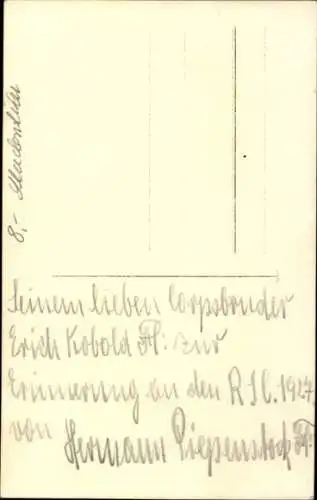 8,- Studentika
Seinem lieben Corpsbruder
Erich Kobold Fl: zur
Erinnerung an den R.S.C. 1927.
von Hermann